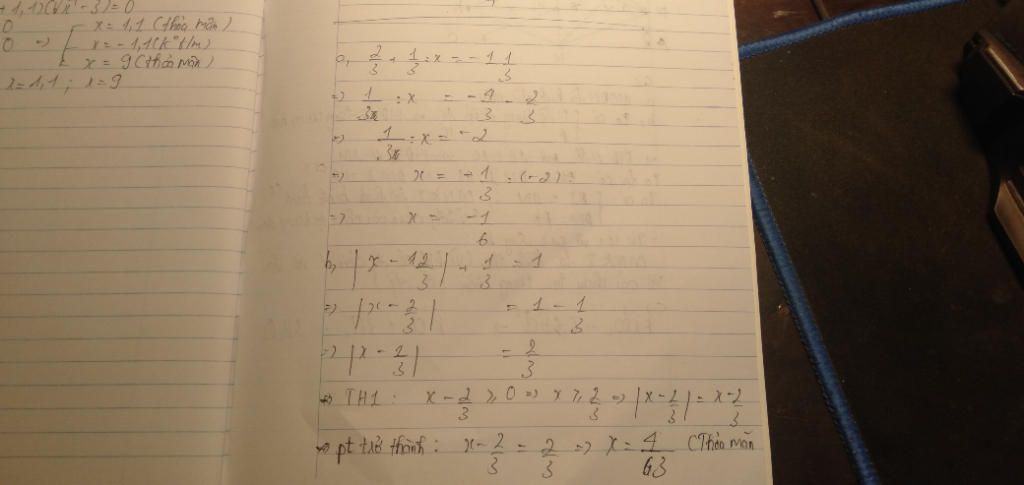 + 1,1)(√x - 3) = 0
0
x = 1,1 (thỏa mãn)
0 => x = -1,1 (k° t/m)
x = 9 (thỏa mãn)
x = 1,1 ; x = 9
2/3 + 1/3 : x = -1 1/3
=> 1/3 : x = -4/3 - 2/3
=> 1/3 : x = -2
=> x = 1/3 : (-2)
=> x = -1/6
b, |x - 2/3| + 1/3 = 1
=> |x - 2/3| = 1 - 1/3
=> |x - 2/3| = 2/3
=> TH1 : x - 2/3 ≥ 0 => x ≥ 2/3 => |x - 2/3| = x - 2/3
=> pt trở thành : x - 2/3 = 2/3 => x = 4/3 (Thỏa mãn